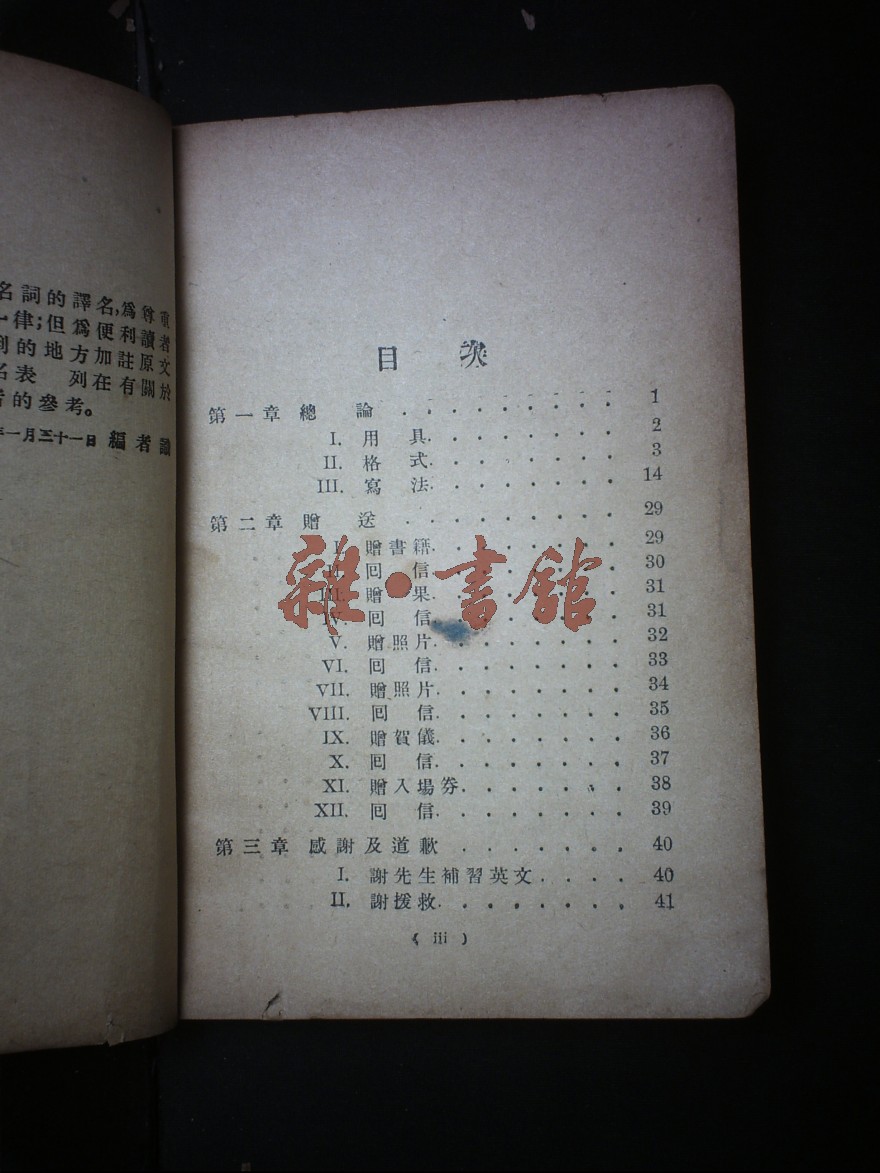 名詞的譯名,爲尊重
一律;但爲便利讀者
到的地方加註原文
名表 列在有關於
者的參考。
年一月三十一日 編者識
目 次
第一章 總 論 . . . . . . . . . . 1
I. 用 具 . . . . . . . . 2
II. 格 式 . . . . . . . . 3
III. 寫 法 . . . . . . . . 14
第二章 贈 送 . . . . . . . . . 29
I. 贈書籍 . . . . . . . . 29
II. 囘 信 . . . . . . . . 30
III. 贈 果 . . . . . . . . 31
IV. 囘 信 . . . . . . . . 31
V. 贈照片 . . . . . . . 32
VI. 囘 信 . . . . . . . . 33
VII. 贈照片 . . . . . . . 34
VIII. 囘 信 . . . . . . . . 35
IX. 贈賀儀 . . . . . . . . 36
X. 囘 信 . . . . . . . . 37
XI. 贈入場券 . . . . . . . 38
XII. 囘 信 . . . . . . . . 39
第三章 感謝及道歉 . . . . . . . 40
I. 謝先生補習英文 . . . . 40
II. 謝援救 . . . . . . . . 41
( iii )
雜·書館